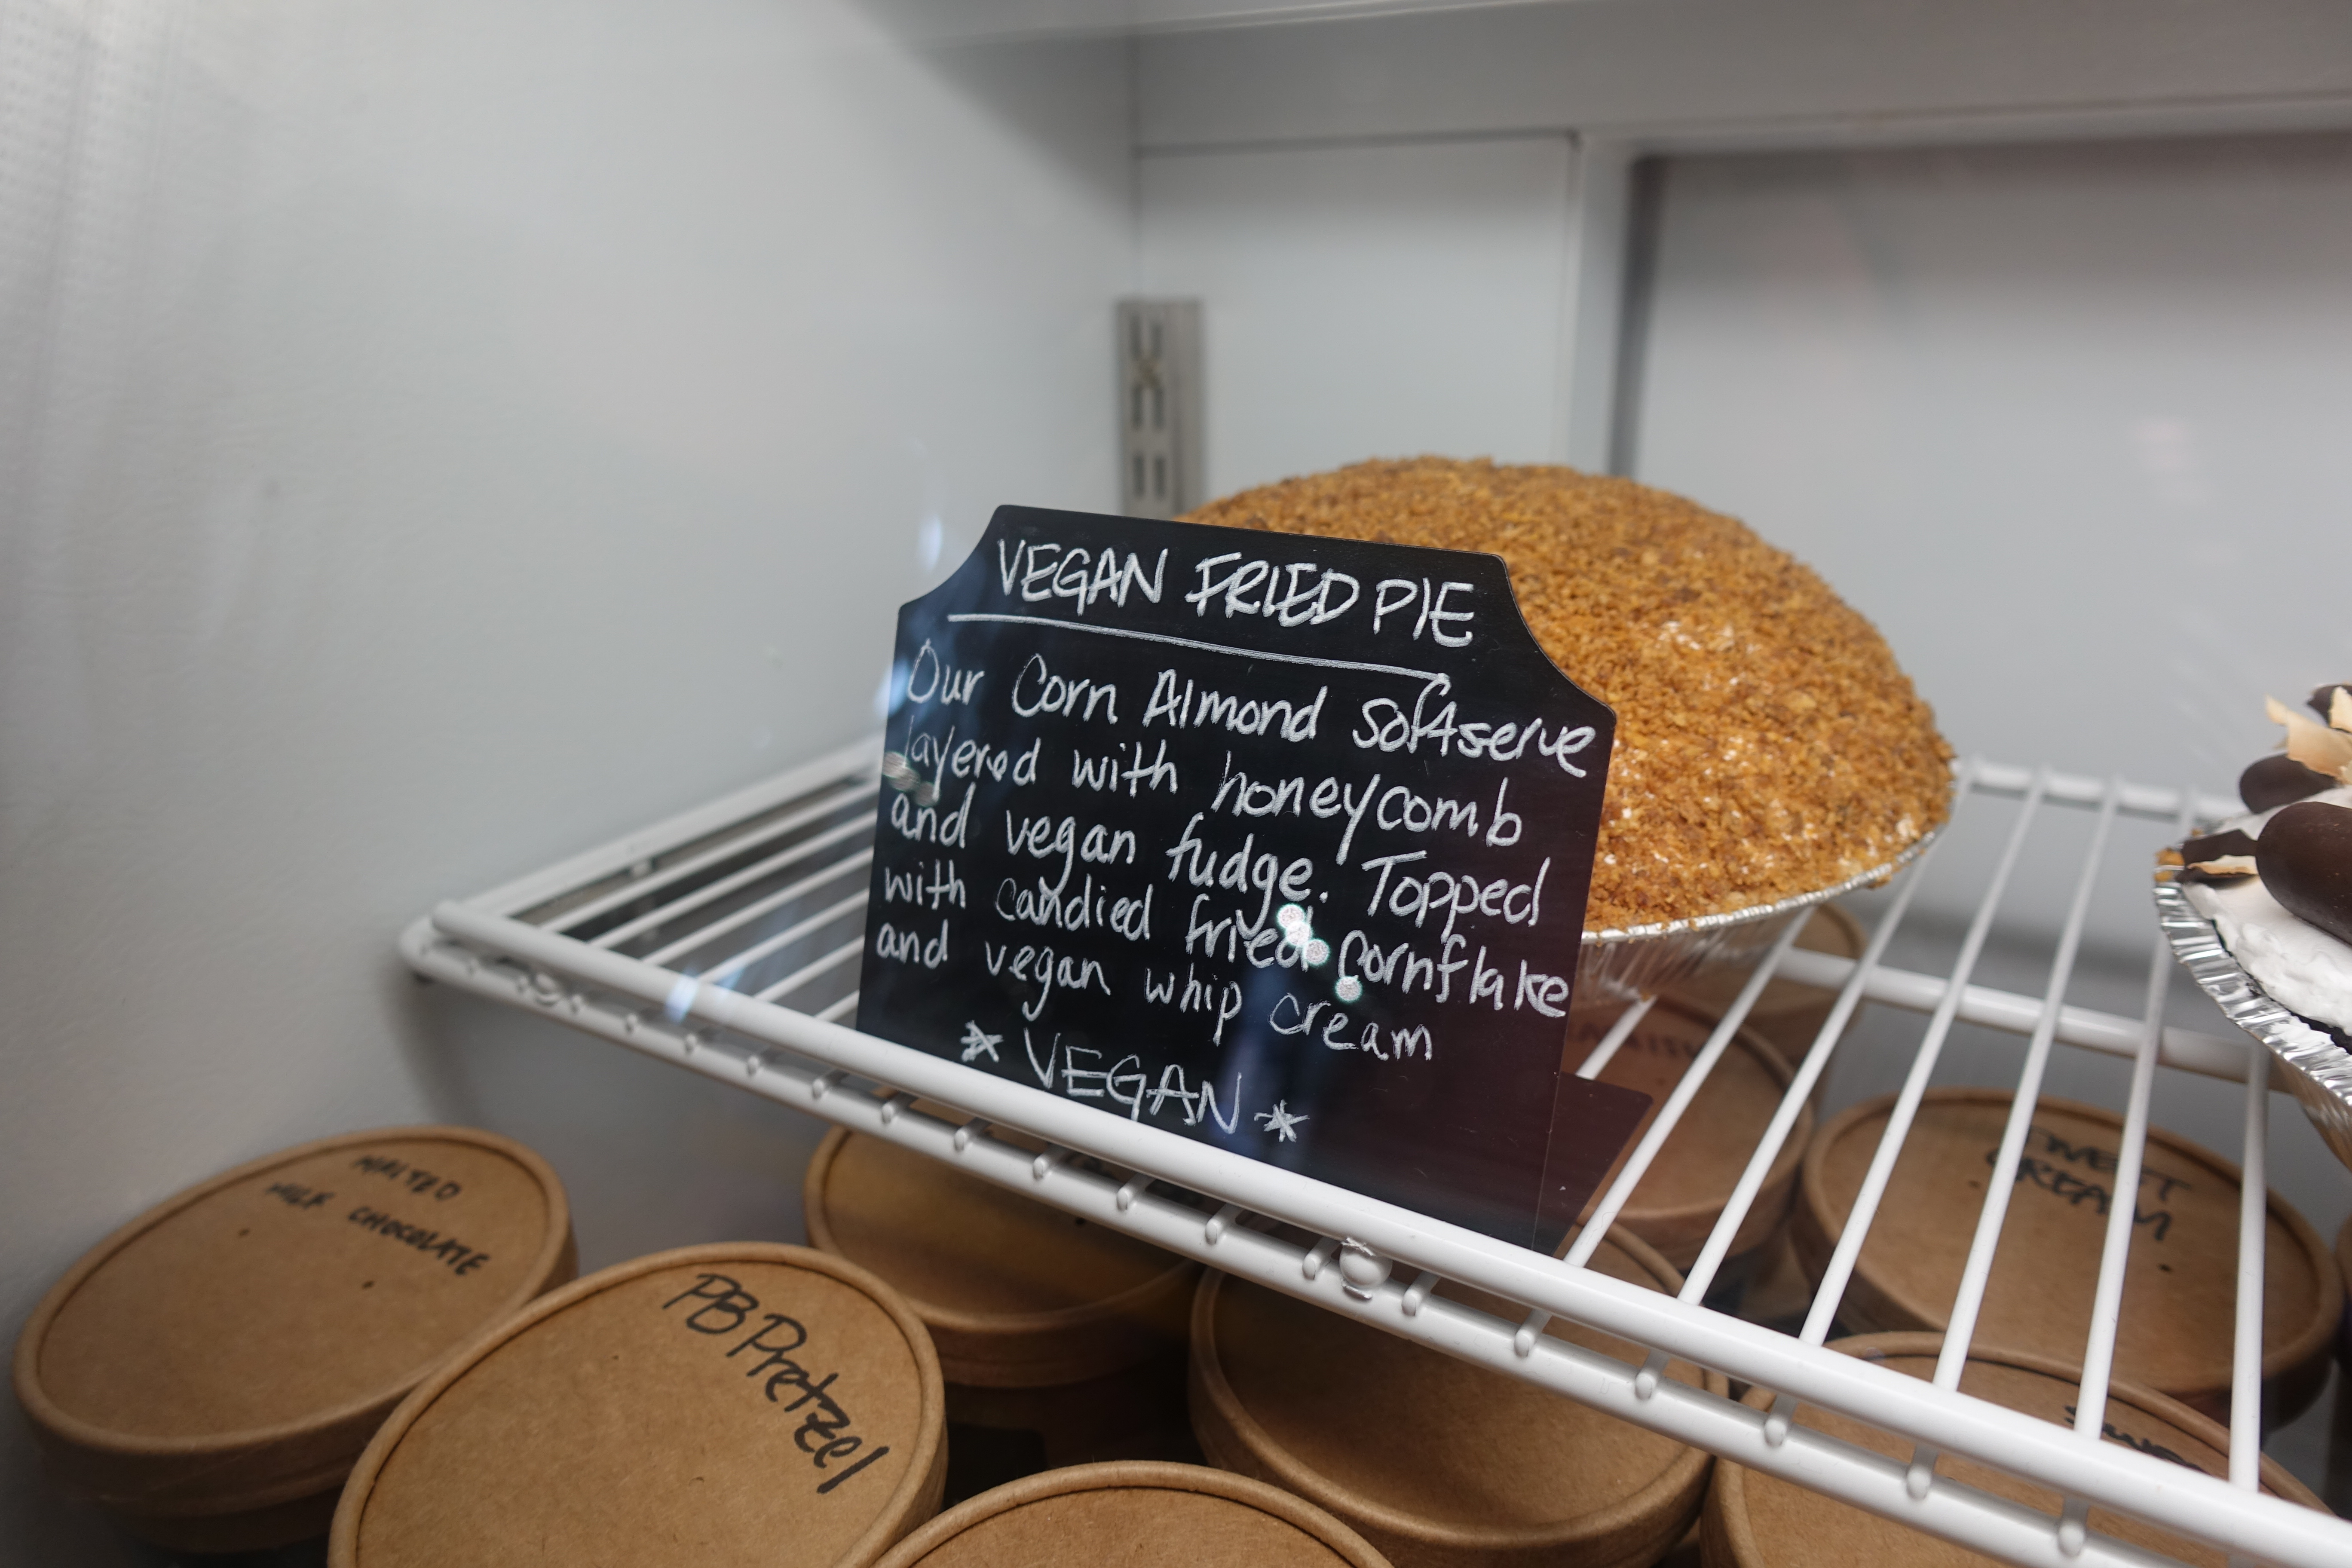 VEGAN FRIED PIE
Our Corn Almond softserve
layered with honeycomb
and vegan fudge. Topped
with candied fried Cornflake
and vegan whip cream
* VEGAN *
MALTED
MILK CHOCOLATE
PB Pretzel
SWEET
CREAM